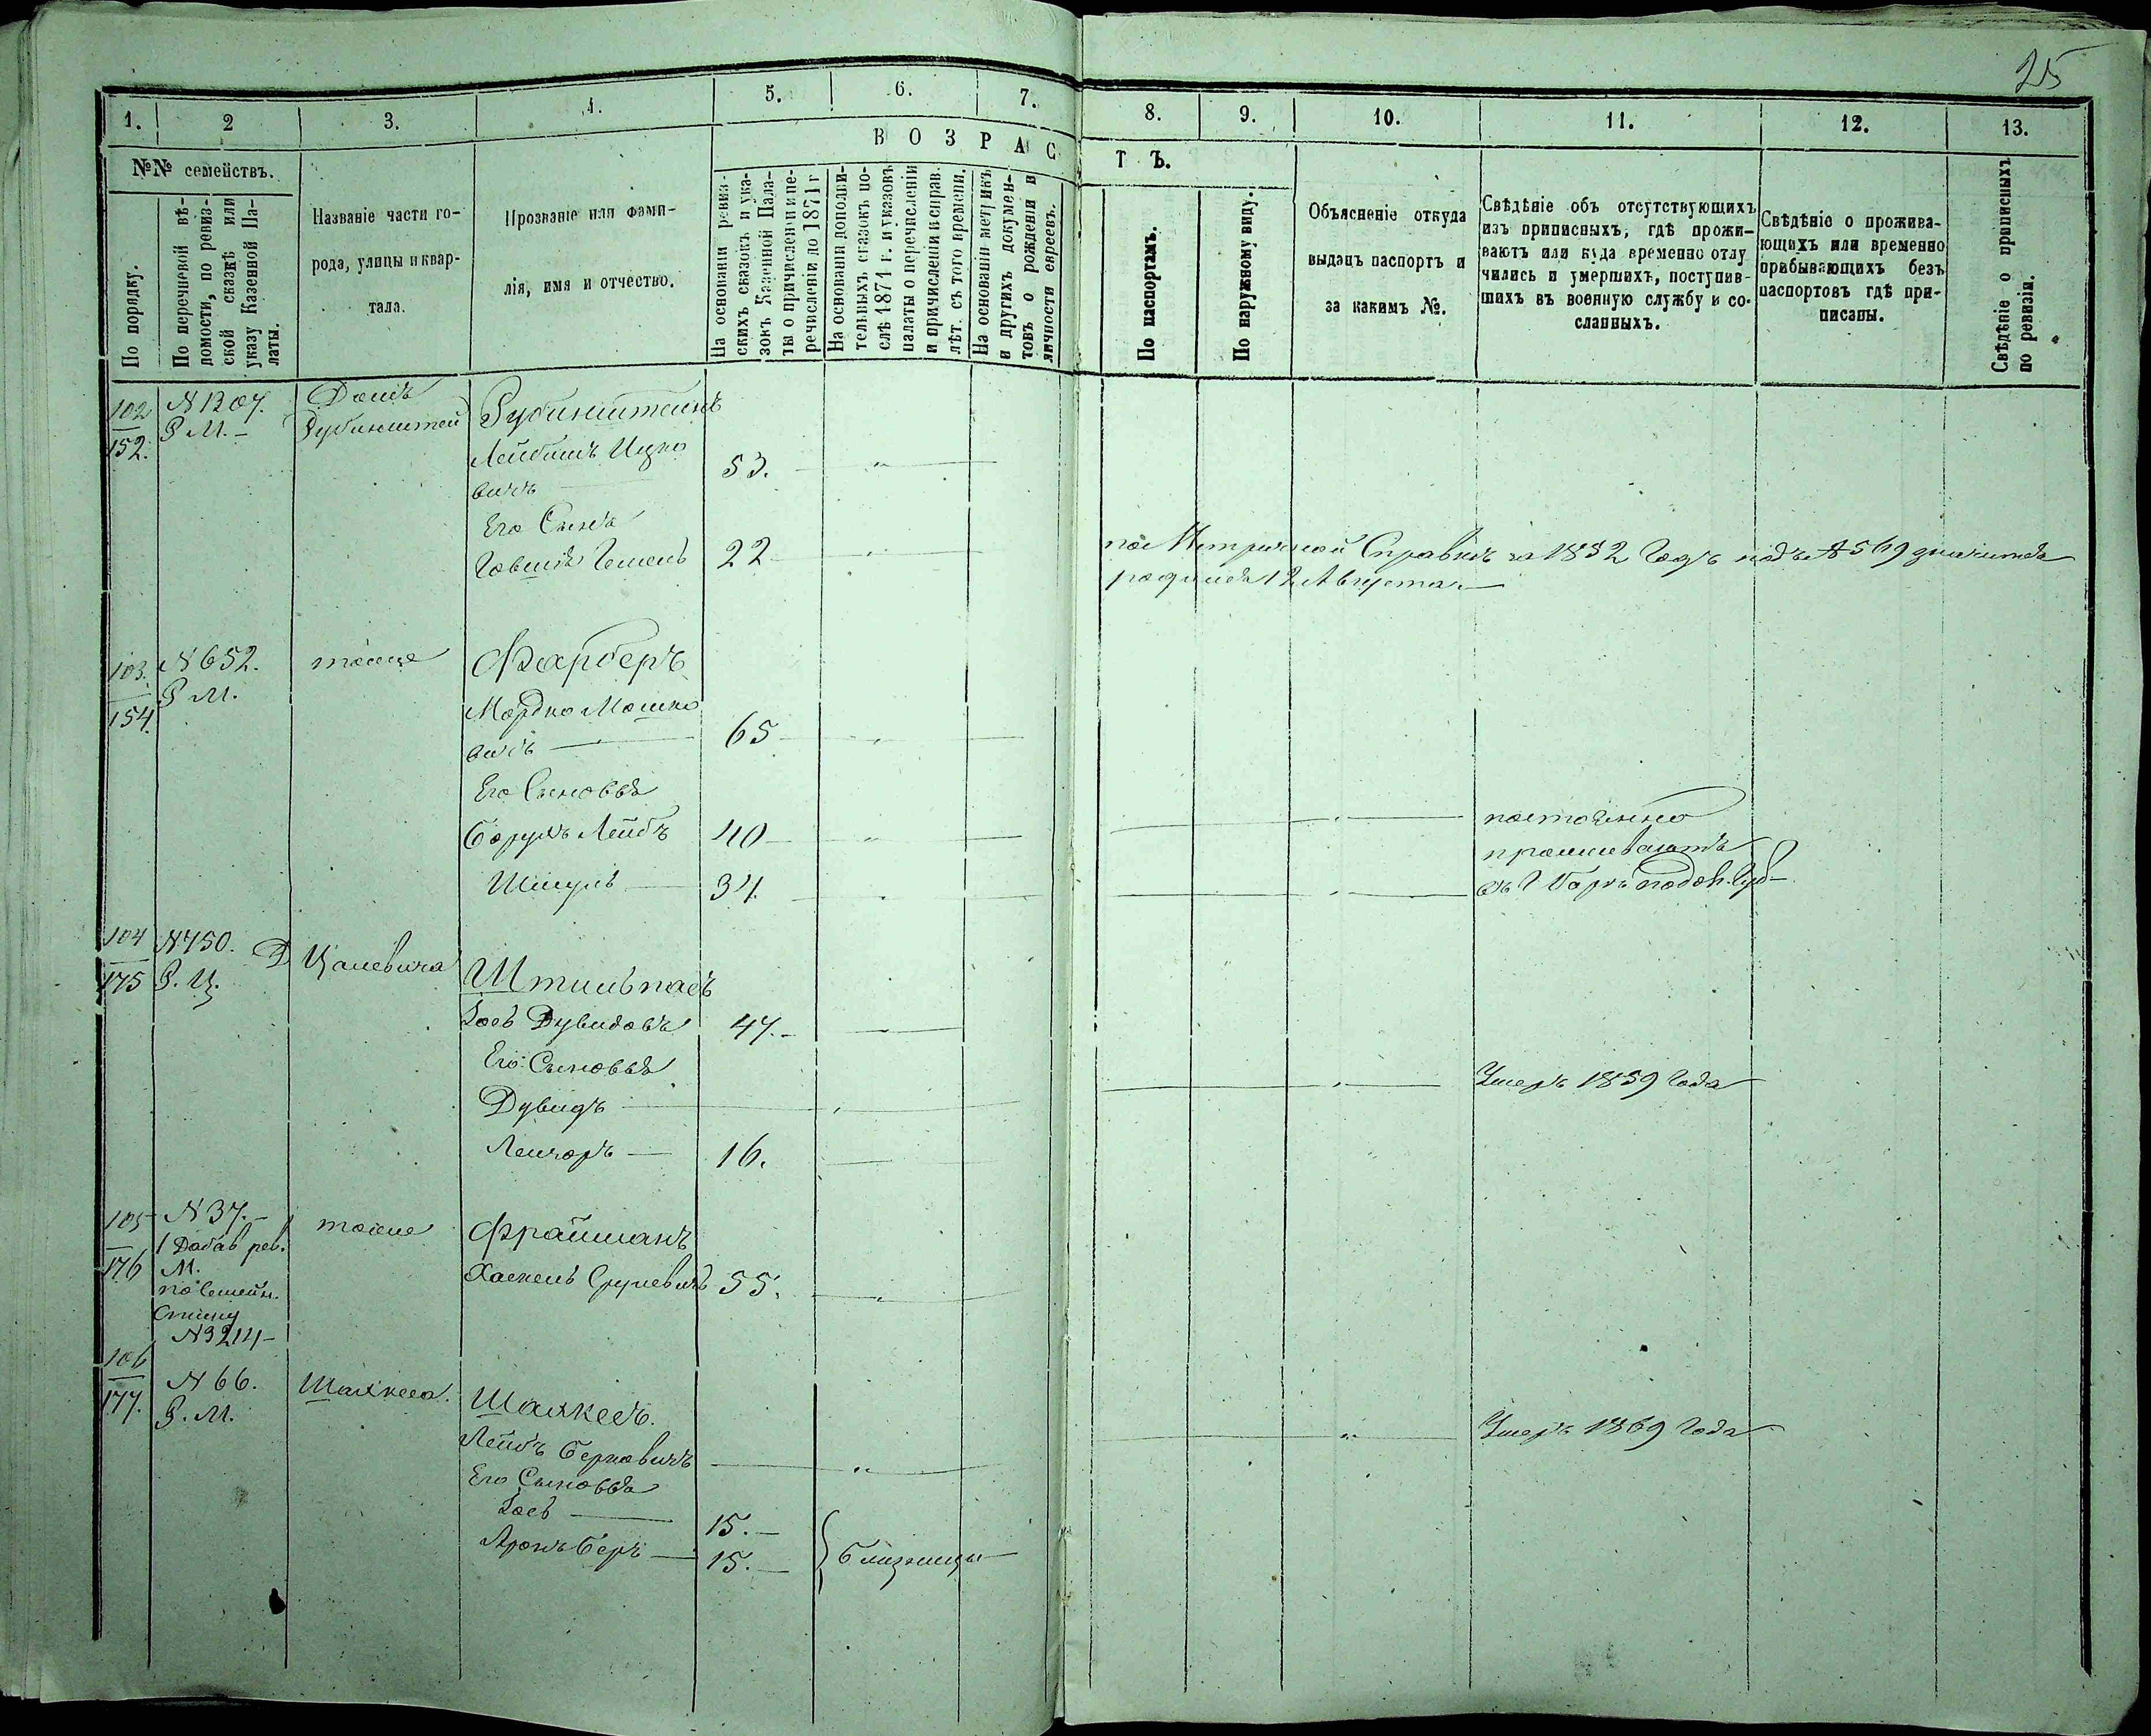 25
1. 2 3. 4. 5. 6. 7. 8. 9. 10. 11. 12. 13.
№№ семействъ.
По порядку.
По перечневой вѣ-
домости, по ревиз-
ской сказкѣ или
указу Казенной Па-
латы.
Названіе части го-
рода, улицы и квар-
тала.
Прозваніе или фами-
лія, имя и отчество.
ВОЗРАСТЪ.
На основаніи ревиз-
скихъ сказокъ и ука-
зокъ Казенной Пала-
ты о причисленіи и пе-
речисленіи до 1871 г
На основаніи дополни-
тельныхъ сказокъ по-
слѣ 1871 г. и указовъ
палаты о перечисленіи
и причисленіи и справ.
лѣт. съ того времени.
На основаніи метрикъ
и другихъ докумен-
товъ о рожденіи и
личности евреевъ.
По паспортамъ.
По наружному виду.
Объясненіе откуда
выданъ паспортъ и
за какимъ №.
Свѣдѣніе объ отсутствующихъ
изъ приписныхъ, гдѣ прожи-
ваютъ или куда временно отлу
чились и умершихъ, поступив-
шихъ въ военную службу и со-
сланныхъ.
Свѣдѣніе о прожива-
ющихъ или временно
прибывающихъ безъ
паспортовъ гдѣ при-
писаны.
Свѣдѣніе о приписныхъ
по ревизіи.
102 N 1207. Домъ
152. Р М. Рубинштей Рубинштейнъ
Лейбишъ Ицко
вичъ 53.
Его Сынъ
22
по Метричной Справкѣ за 1852 Годъ подъ N 569 значится
родился 12 Августа
103. N 652. тоже Фарберъ
154. Р М.
Мордко Мошко
вичъ 65
Его Сыновья
Борухъ Лейбъ 40 постоянно
проживаютъ
Шмуль 34
104 N 750. Д Цалевича
175 Р. Ц. Штильпасъ
Іось Дувидовъ 47.
Его Сыновья
Дувидъ Умеръ 1859 Года
Лейзоръ 16.
105 N 37. тоже Фрайманъ
1 Добав рев.
176 М. Хаскель Срулевичъ 55.
по Семейн.
Списку
N 3214
106 N 66.
177. Р. М.
Лейбъ Берковичъ Умеръ 1869 Года
Его Сыновья
Іось 15.
Аронъ Беръ 15. Близнецы